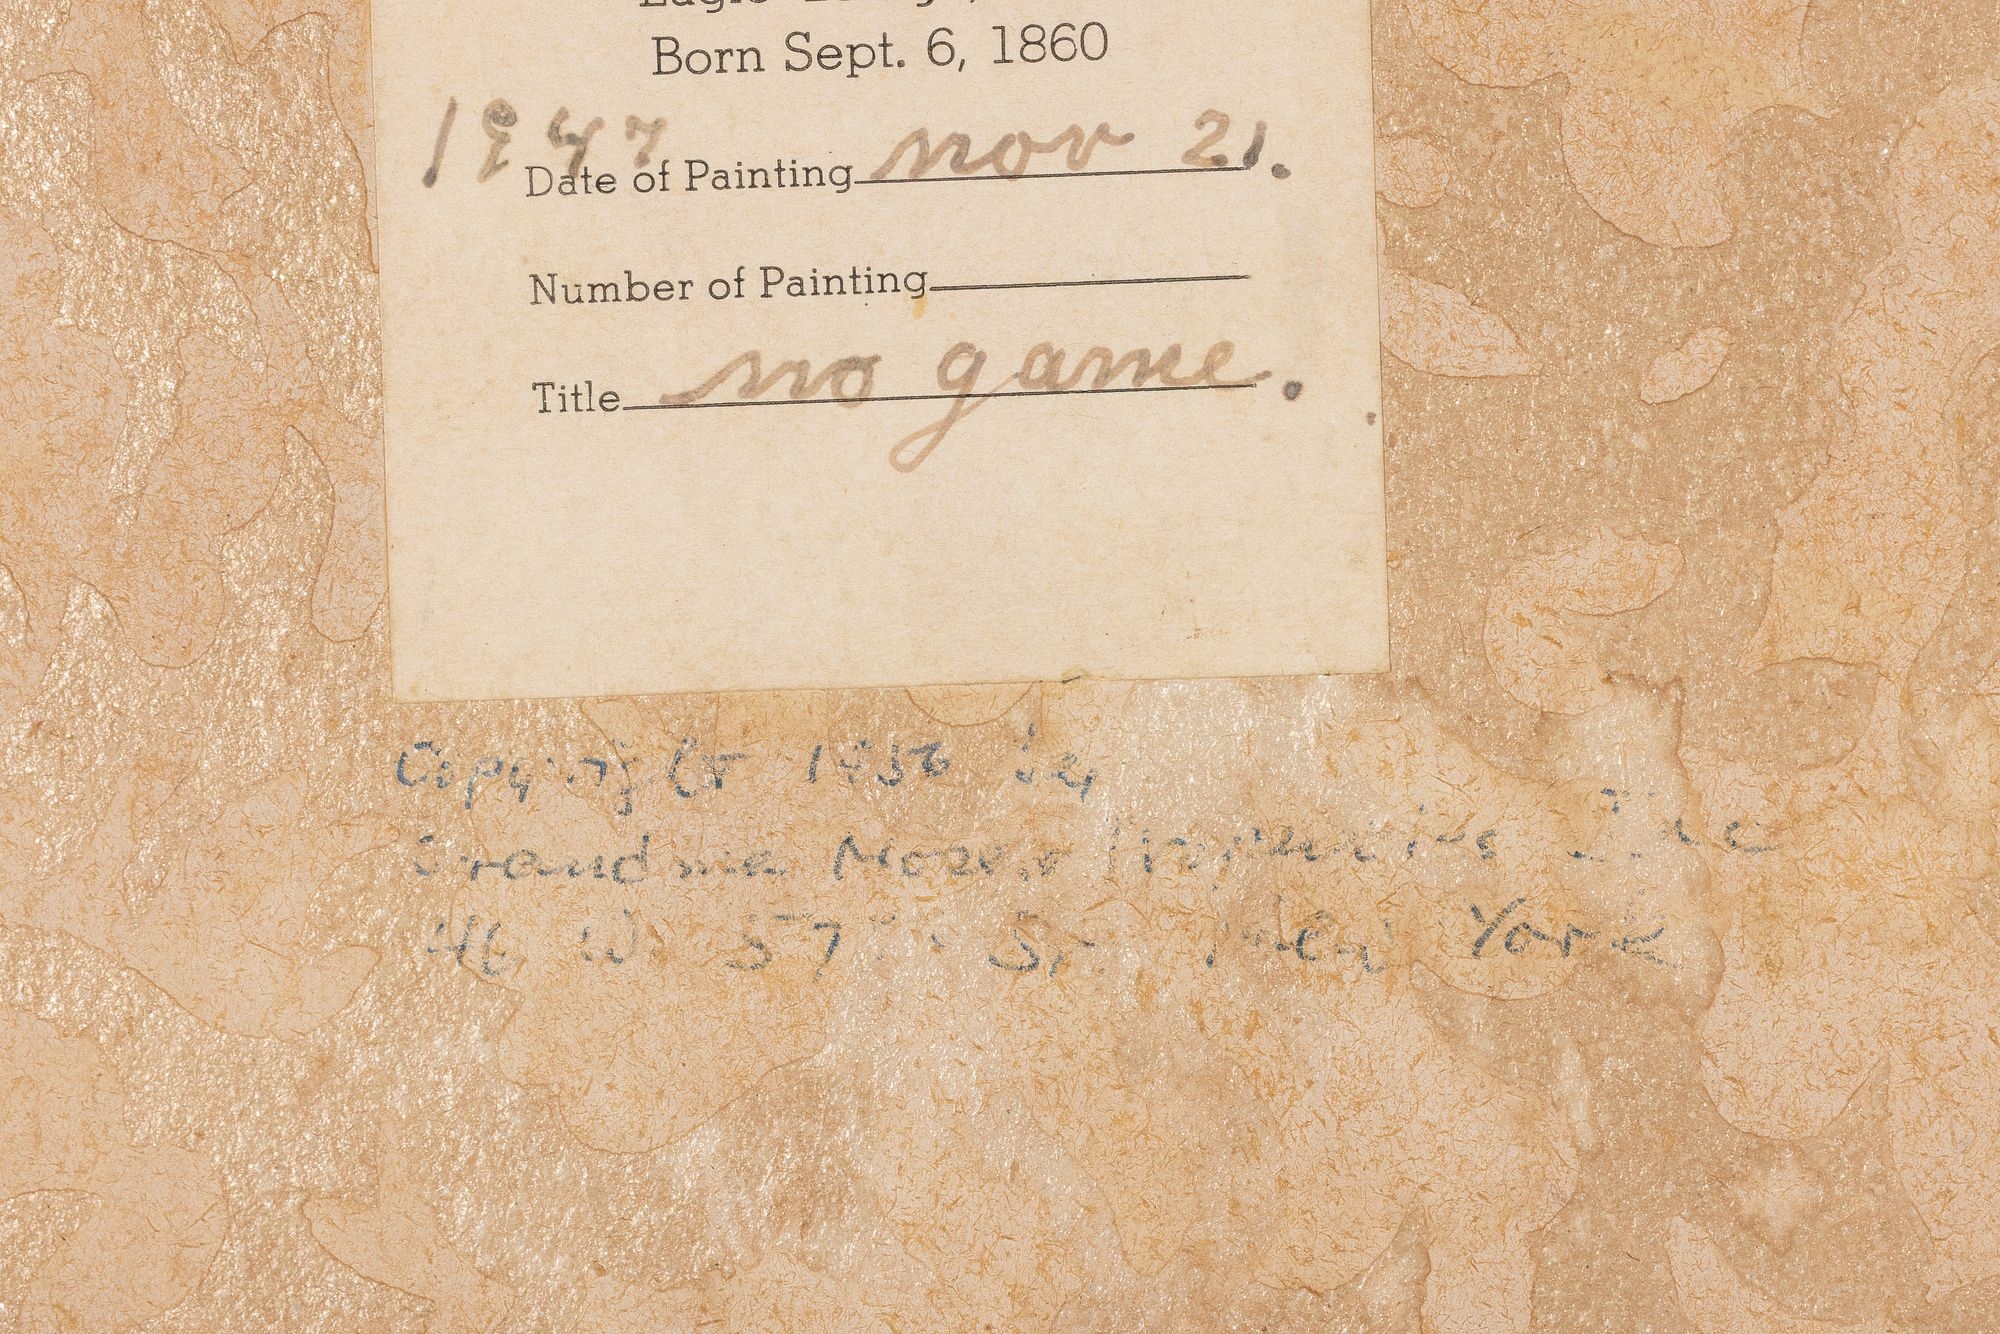 Born Sept. 6, 1860
1947
Date of Painting nov 21.
Number of Painting
Title no game.
Copyright 1956 by
Grandma Moses Properties Inc
46 W. 57th St. New York